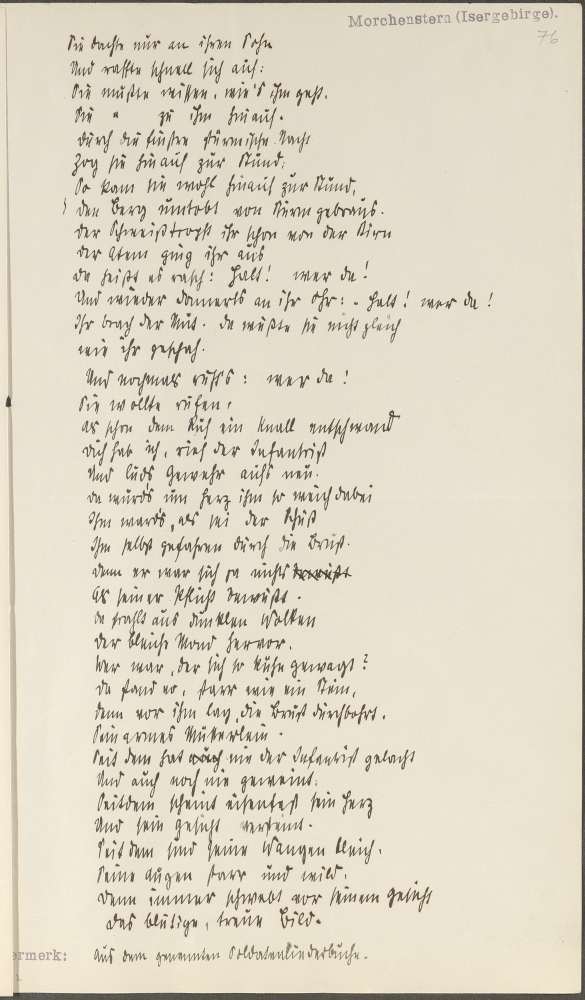 Morchenstern (Isergebirge).
76
Sie dachte nur an ihren Sohn
Und raffte schnell sich auf:
Sie mußte wissen, wie's ihm geht.
Sie " zu ihm hinauf.
Durch die finstre stürmische Nacht
Zog sie hinauf zur Stund;
So kam sie wohl hinauf zur Stund,
den Berg umtobt von Sturmgebraus.
der Schweiß tropft ihr schon von der Stirn
der Atem ging ihr aus
da heißt es rasch: Halt! wer da!
Und wieder donnerts an ihr Ohr: - Halt! wer da!
Ihr brach der Mut. da wußte sie nicht gleich
wie ihr geschah.
Und nochmals rufts: wer da!
Sie wollte rufen,
als schon dem Ruf ein Knall entschwand
Dich hab ich, rief der Infantrist
Und luds Gewehr aufs neu.
da wurds um Herz ihm so weich dabei
Ihm wards, als sei der Schuß
Ihm selbst gefahren durch die Brust.
denn er war sich ja nichts bewußt
Als seiner Pflicht bewußt.
da strahlt aus dunklen Wolken
der bleiche Mond hervor.
Wer war, der sich so kühn gewagt?
da stand er, starr wie ein Stein,
denn vor ihm lag, die Brust durchbohrt.
Sein armes Mütterlein.
Seit dem hat auch nie der Infantrist gelacht
Und auch noch nie geweint.
Seitdem scheint eisenfest sein Herz
Und sein Gesicht versteint.
Seit dem sind seine Wangen bleich.
Seine Augen starr und wild.
Denn immer schwebt vor seinem Gesicht
das blutige, treue Bild.
ermerk: Aus dem genannten Soldatenliederbuche.